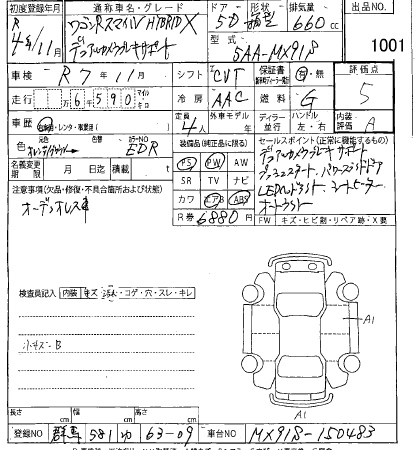 初度登録年月 通称車名・グレード ドア 形状 排気量 出品NO.
R 4年11月 ワゴンRスマイル HYBRID X 5D 箱型 660cc
デュアルカメラブレーキサポート 型式 5AA-MX91S 1001
車検 R7年11月 シフト CVT 保証書 有・無 評価点
走行 6千590 マイルキロ 冷房 AAC 燃料 G 5
車歴 自家用・レンタ・事業用( ) 定員 4人 外車モデル 年 ディーラー 並行 ハンドル 左・右 内装評価 A
色 元色 色替 カラーNO EDR 装備品(純正品に限る) セールスポイント(正常に機能するもの)
名義変更期限 月 日迄 積載 t PS PW AW デュアルカメラブレーキサポート
注意事項(欠品・修復・不具合箇所および状態) SR TV ナビ プッシュスタート、パワースライドドア
オーデオレス車 カワ エアB ABS LEDヘッドライト、シートヒーター
R券 6880円 オートライト
FW キズ・ヒビ割・リペア跡・X要
検査員記入 内装 キズ・汚れ・コゲ・穴・スレ・キレ
小キズ-B
A1
A1
長さ cm 幅 cm 高さ cm
登録NO 群馬 581 ゆ 63-09 車台NO MX91S-150483